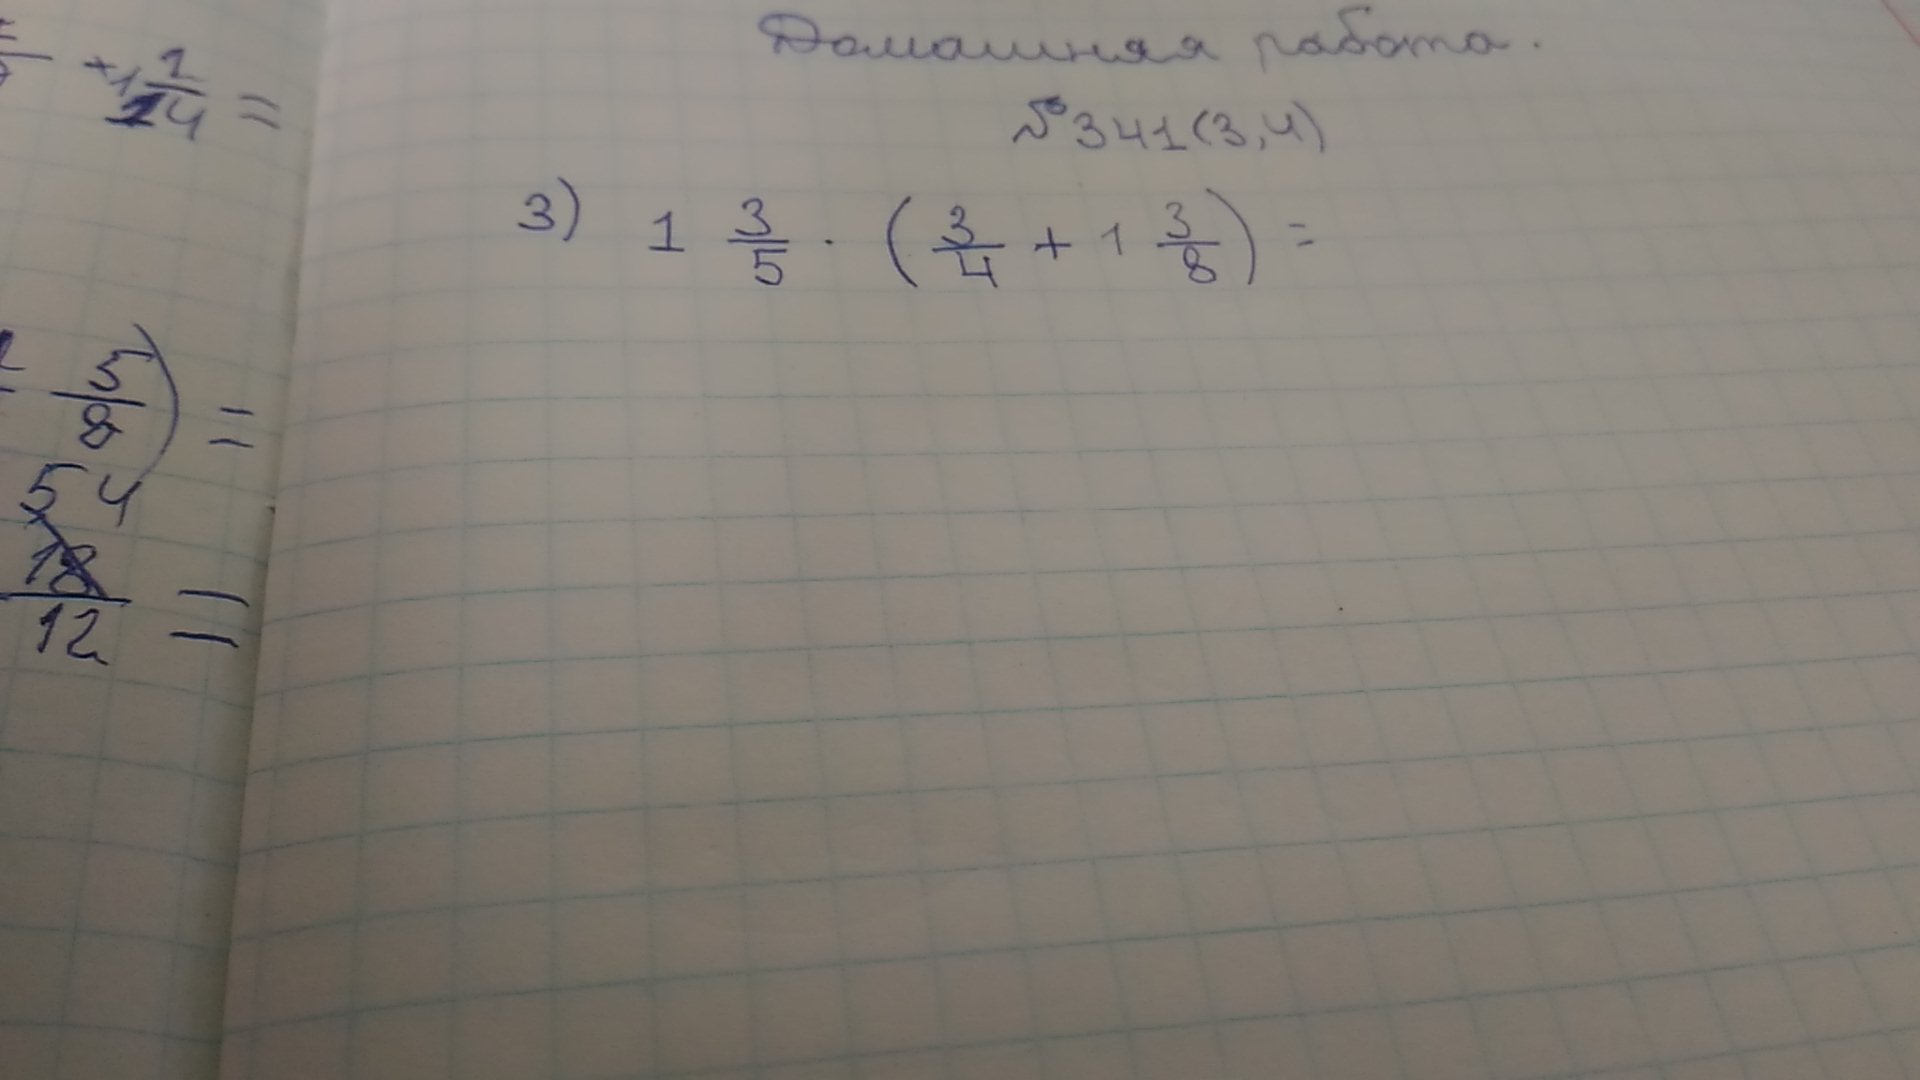 +1 1/14 =
5/8) =
54
18/12 =
Домашняя работа.
№341(3,4)
3) 1 3/5 · (3/4 + 1 3/8) =